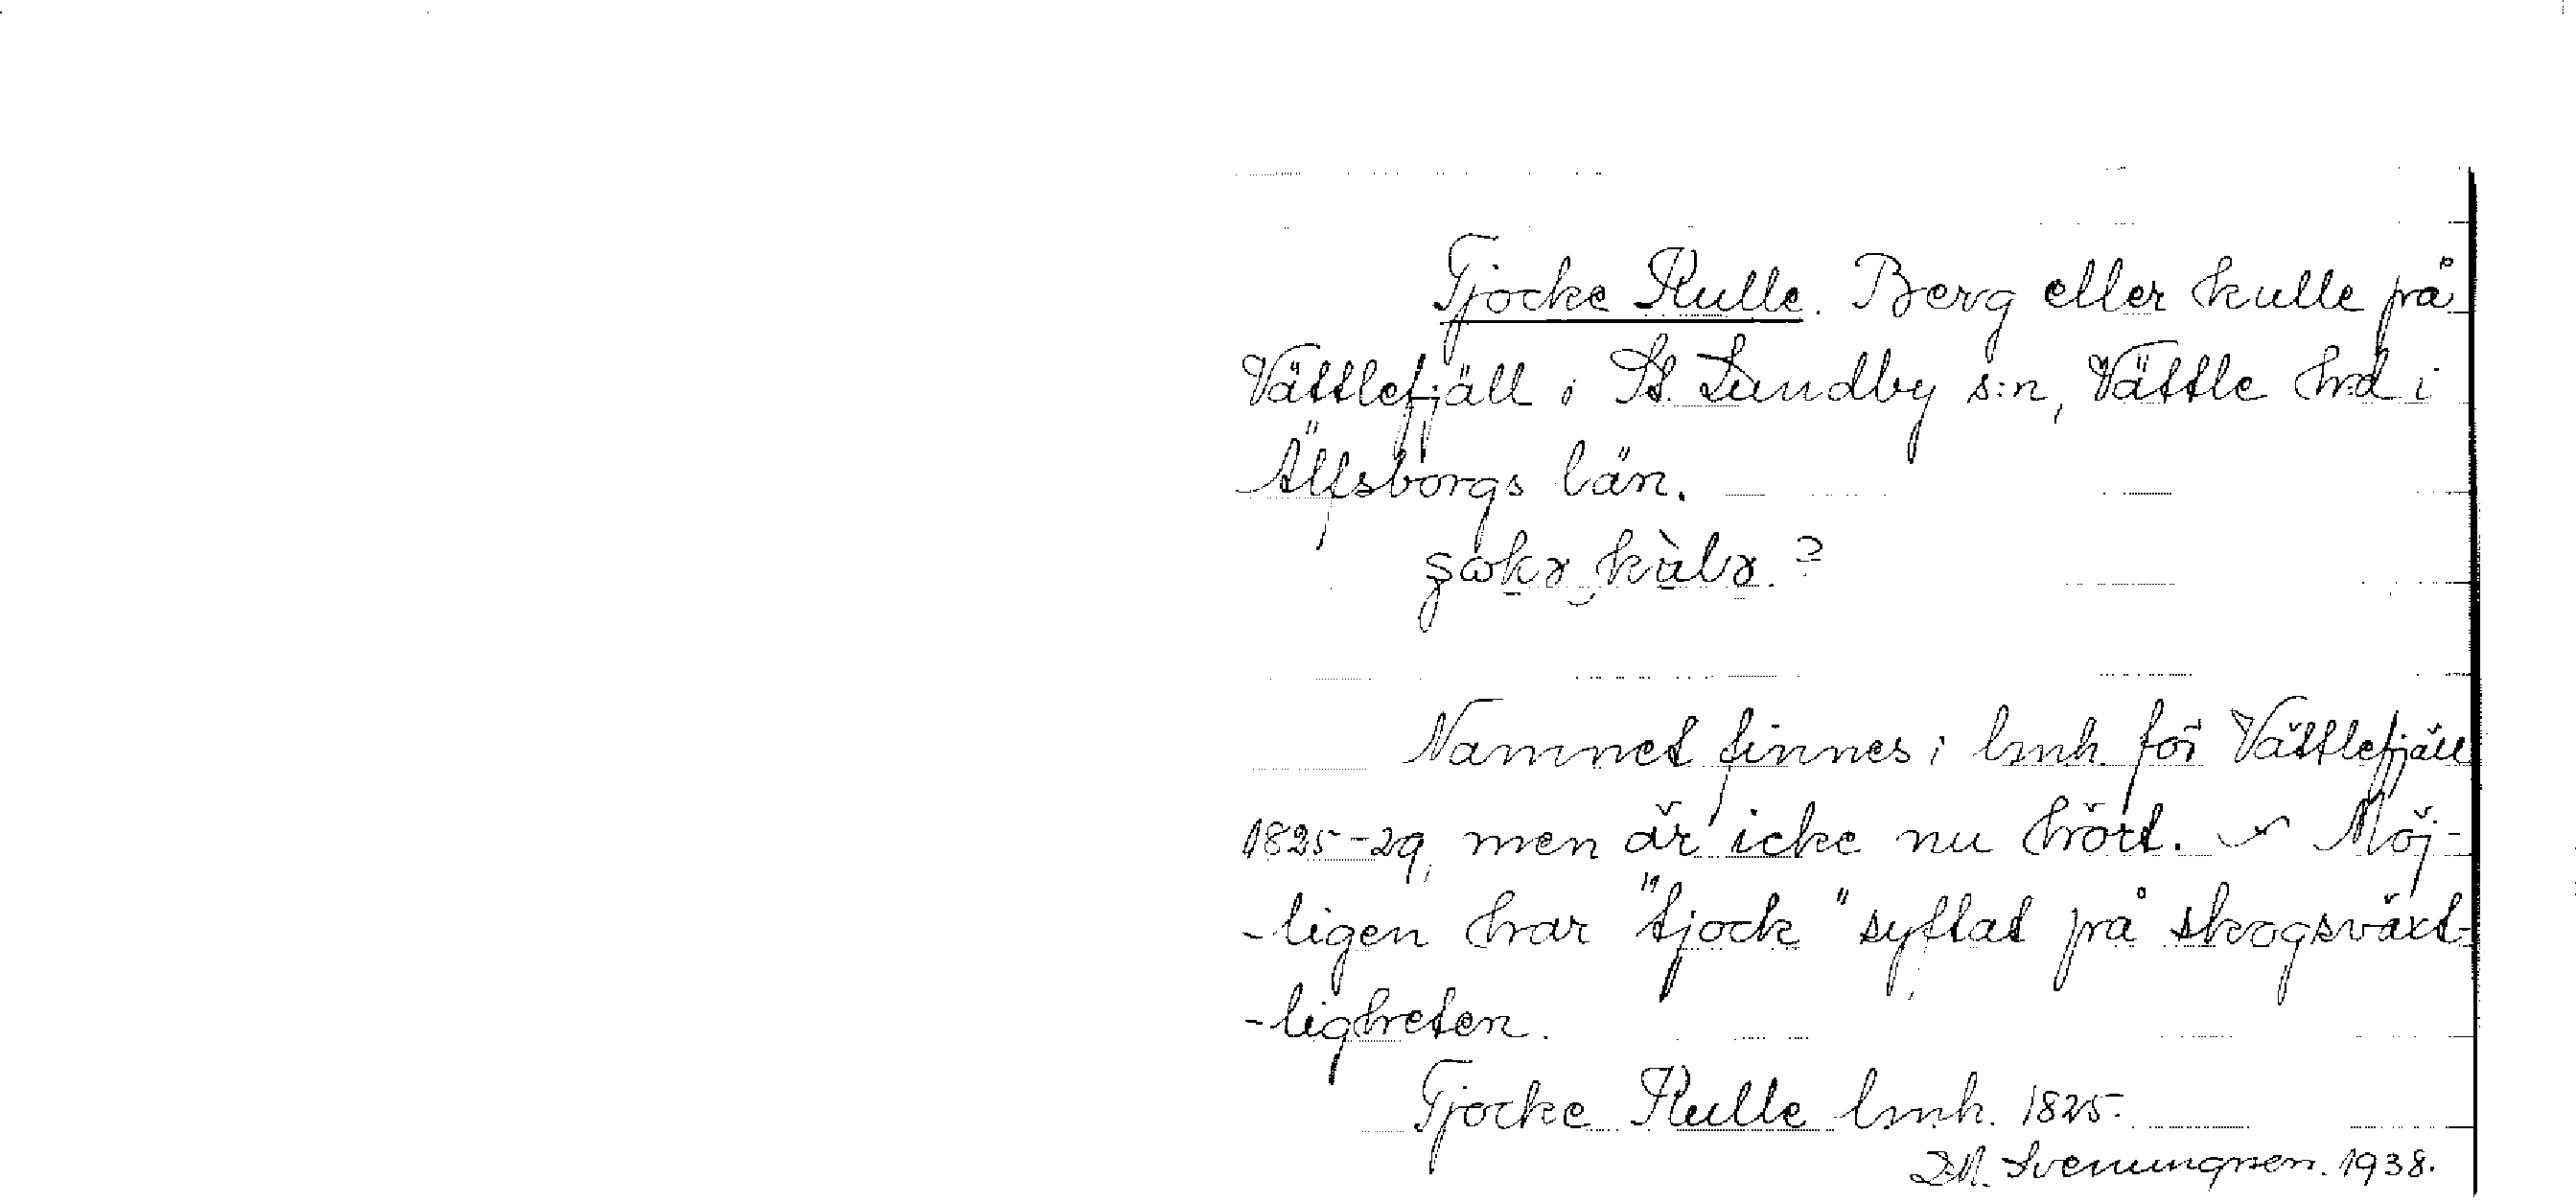 Tjocke Kulle. Berg eller kulle på
Vättlefjäll i St. Lundby s:n, Vättle h:d i
Älfsborgs län.
Namnet finnes i lmh. för Vättlefjäll
1825-29, men är icke nu hört. Möj-
-ligen har "tjock" syftat på skogsväxt-
-ligheten.
Tjocke Kulle lmh. 1825.
Svenungsen. 1938.